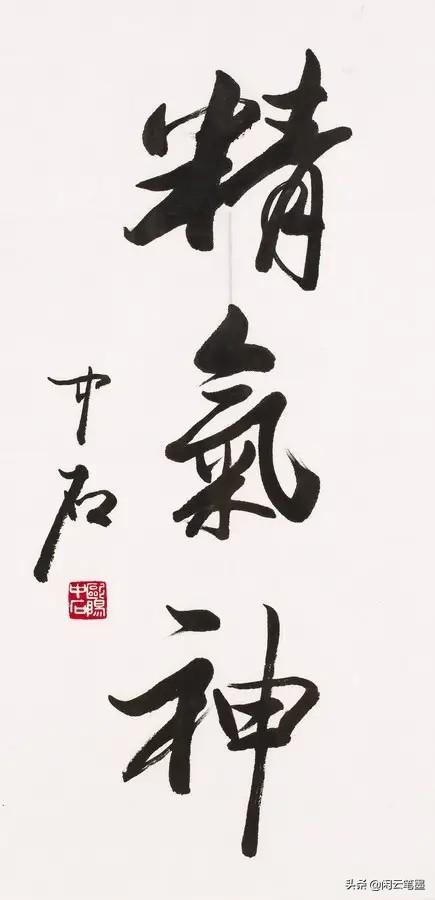 精氣神
中石
歐陽中石
头条 @闲云笔墨